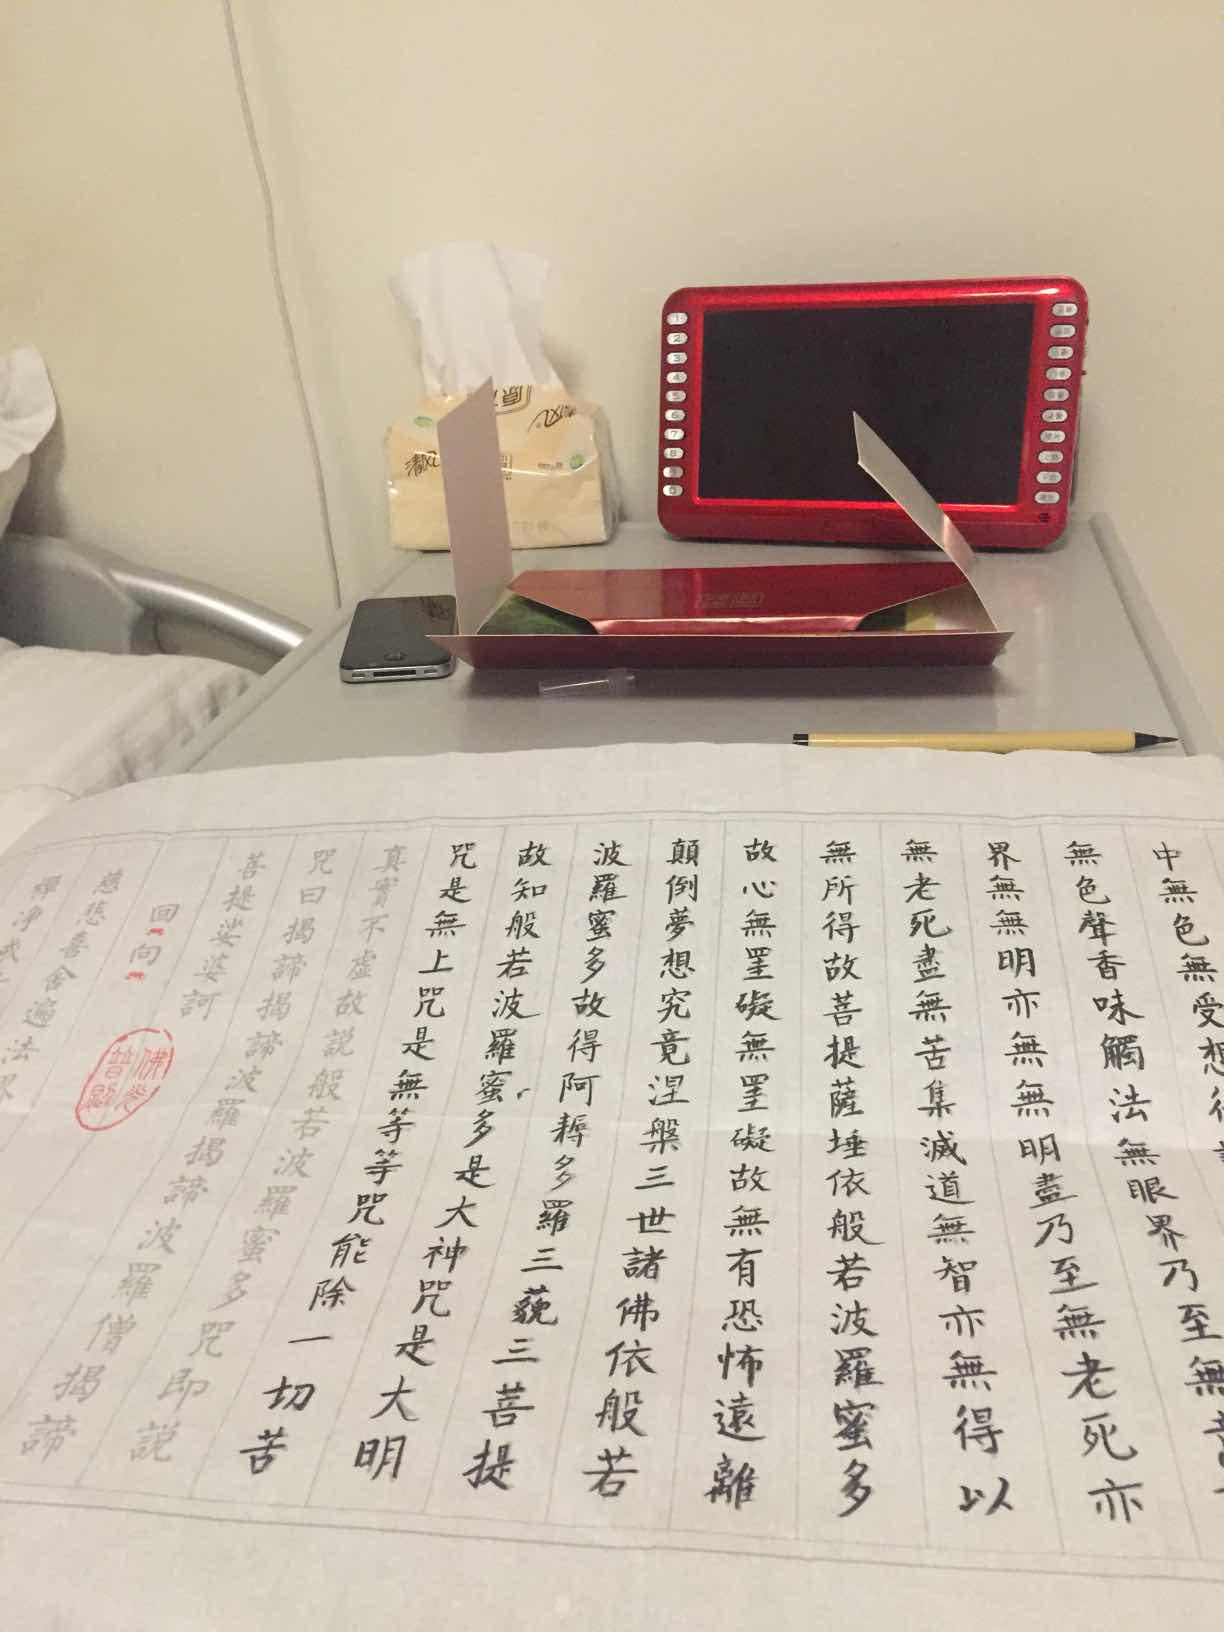 中無色無受想
無色聲香味觸法無眼界乃至無
界無無明亦無無明盡乃至無老死亦
無老死盡無苦集滅道無智亦無得以
無所得故菩提薩埵依般若波羅蜜多
故心無罣礙無罣礙故無有恐怖遠離
顛倒夢想究竟涅槃三世諸佛依般若
波羅蜜多故得阿耨多羅三藐三菩提
故知般若波羅蜜多是大神咒是大明
咒是無上咒是無等等咒能除一切苦
真實不虛故説般若波羅蜜多咒即説
咒曰揭諦揭諦波羅揭諦波羅僧揭諦
菩提娑婆訶
回向
慈悲喜舍遍法界
禪淨戒
清风
1
2
3
4
5
6
7
8
9
0